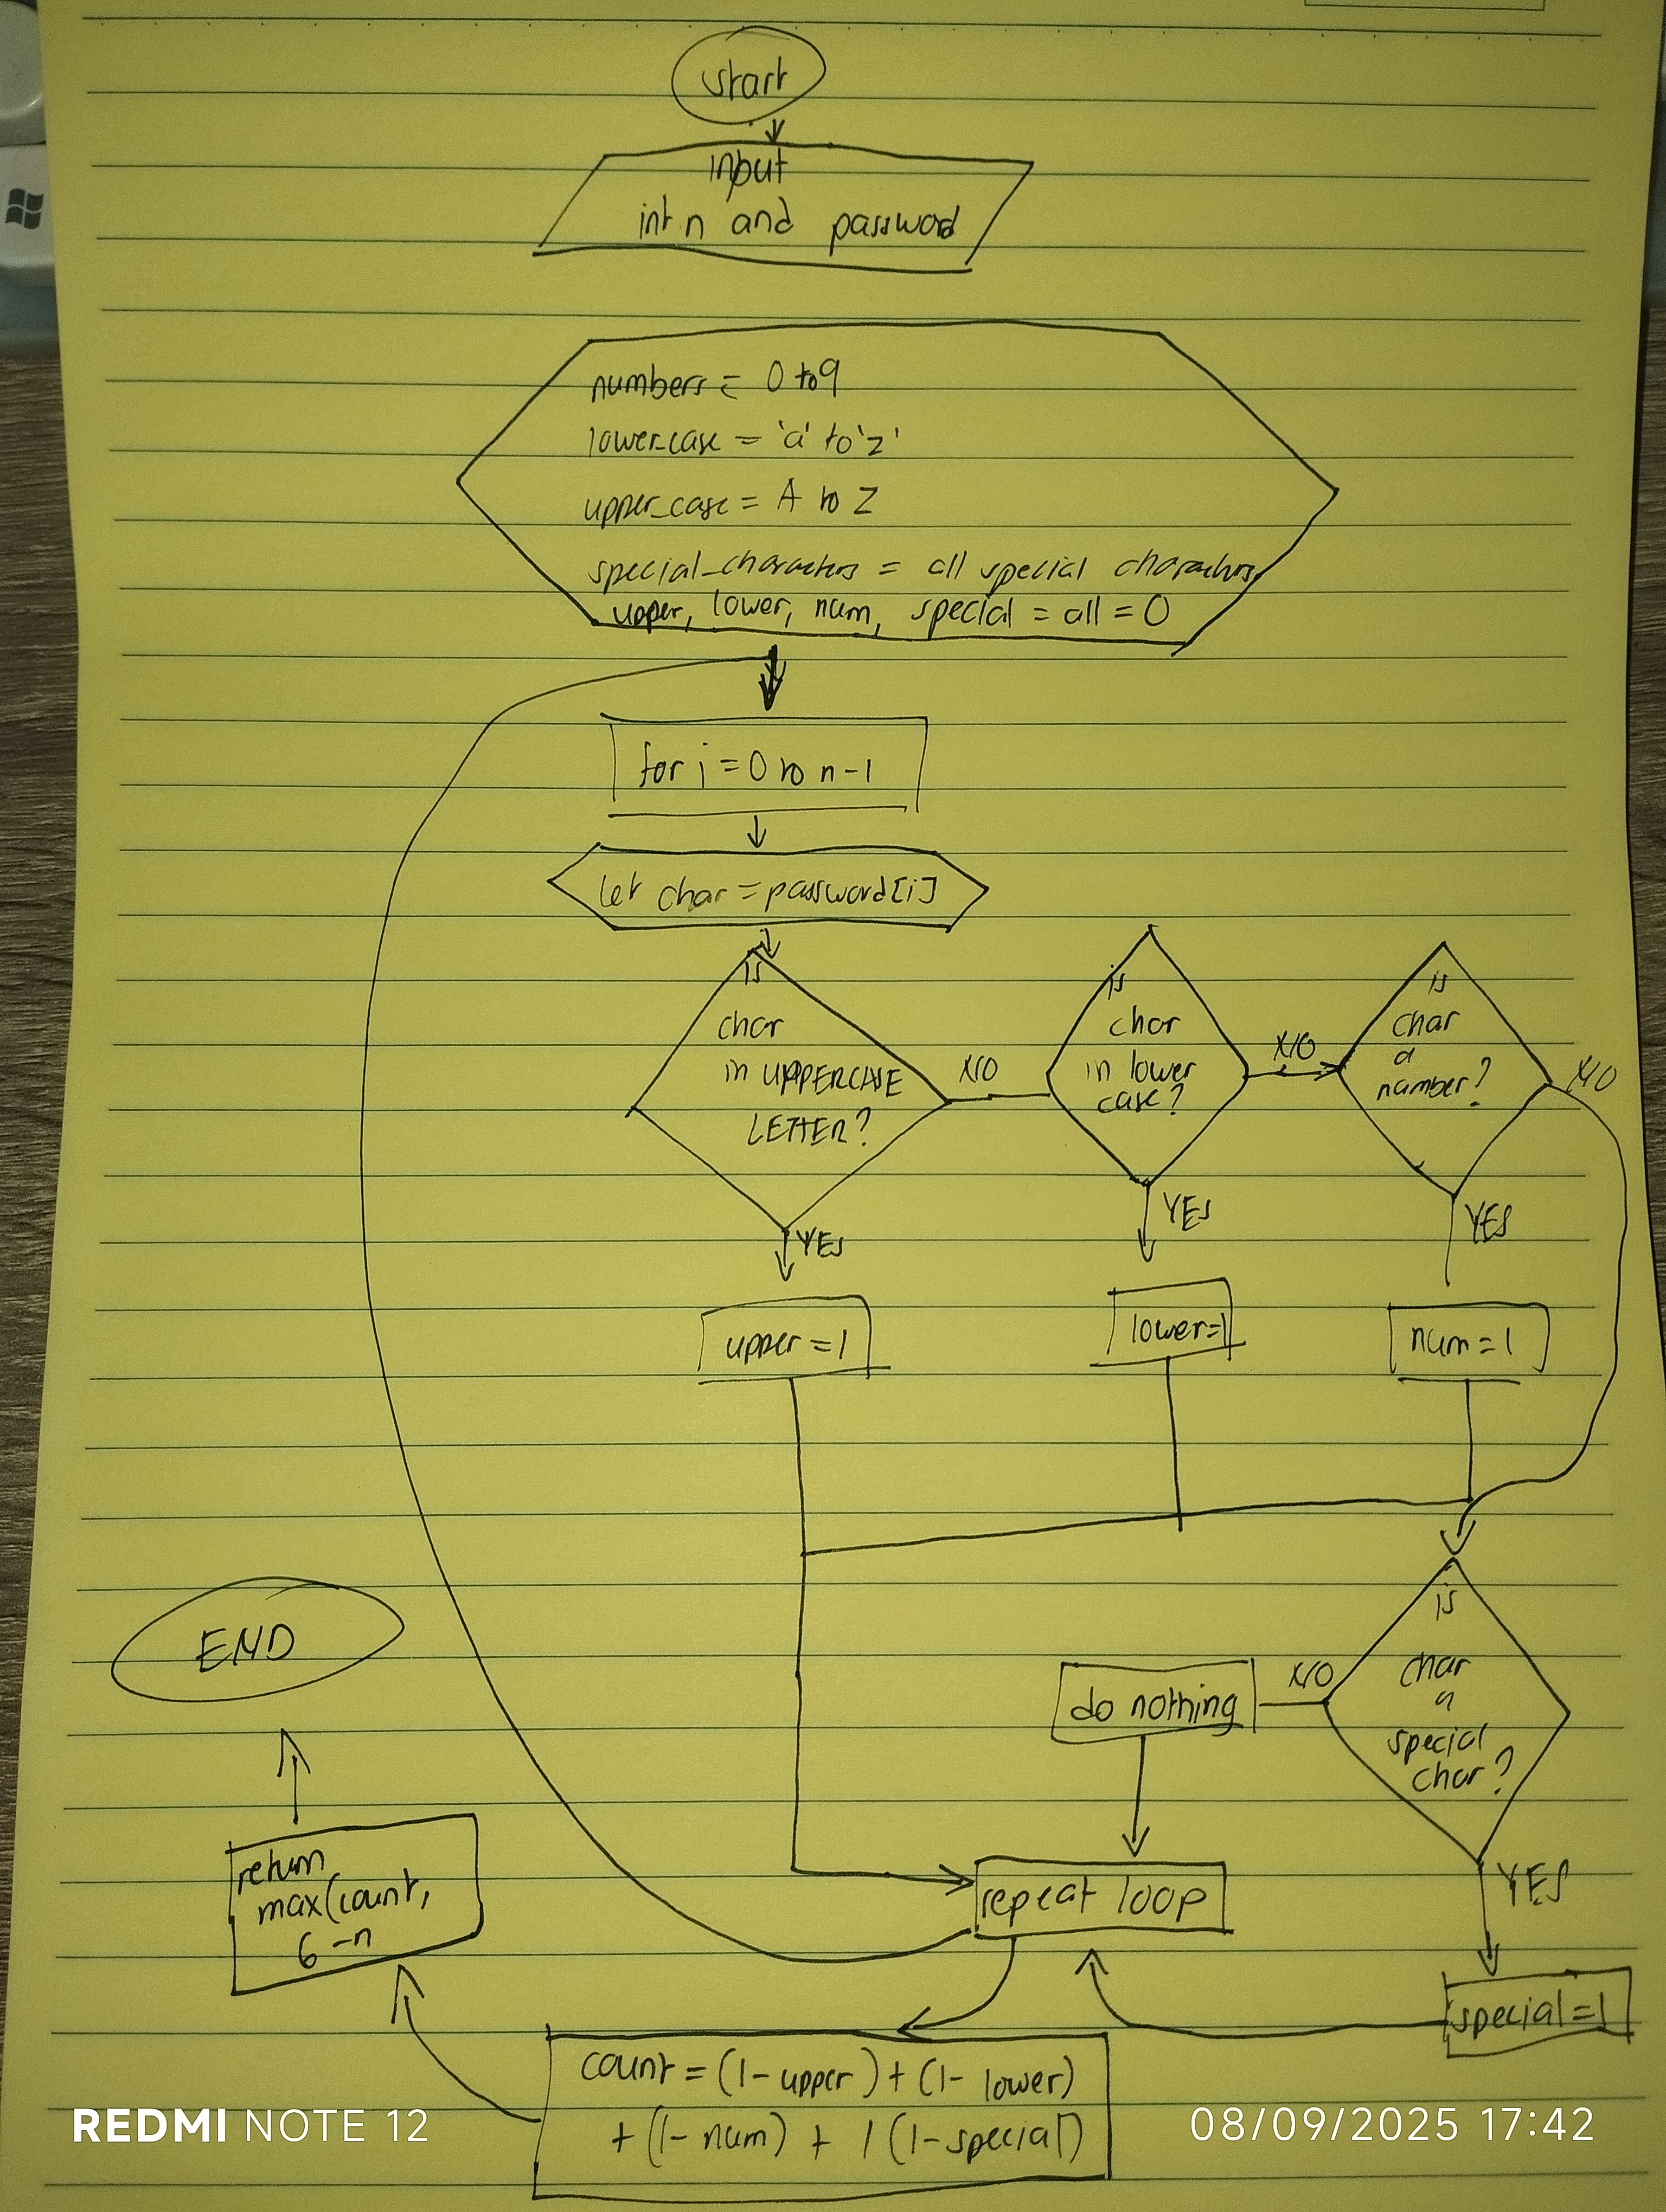 start
input
int n and password
numbers = 0 to 9
lower_case = 'a' to 'z'
upper_case = A to Z
special_characters = all special characters
upper, lower, num, special = all = 0
for i = 0 to n-1
let char = password[i]
is
char
in UPPERCASE
LETTER?
NO
YES
is
char
in lower
case?
NO
YES
is
char
a
number?
NO
YES
upper = 1
lower=1
num=1
is
char
a
special
char?
NO
YES
do nothing
repeat loop
special=1
count = (1-upper) + (1-lower)
+ (1-num) + 1 (1-special)
return
max(count,
6-n
END
REDMI NOTE 12
08/09/2025 17:42